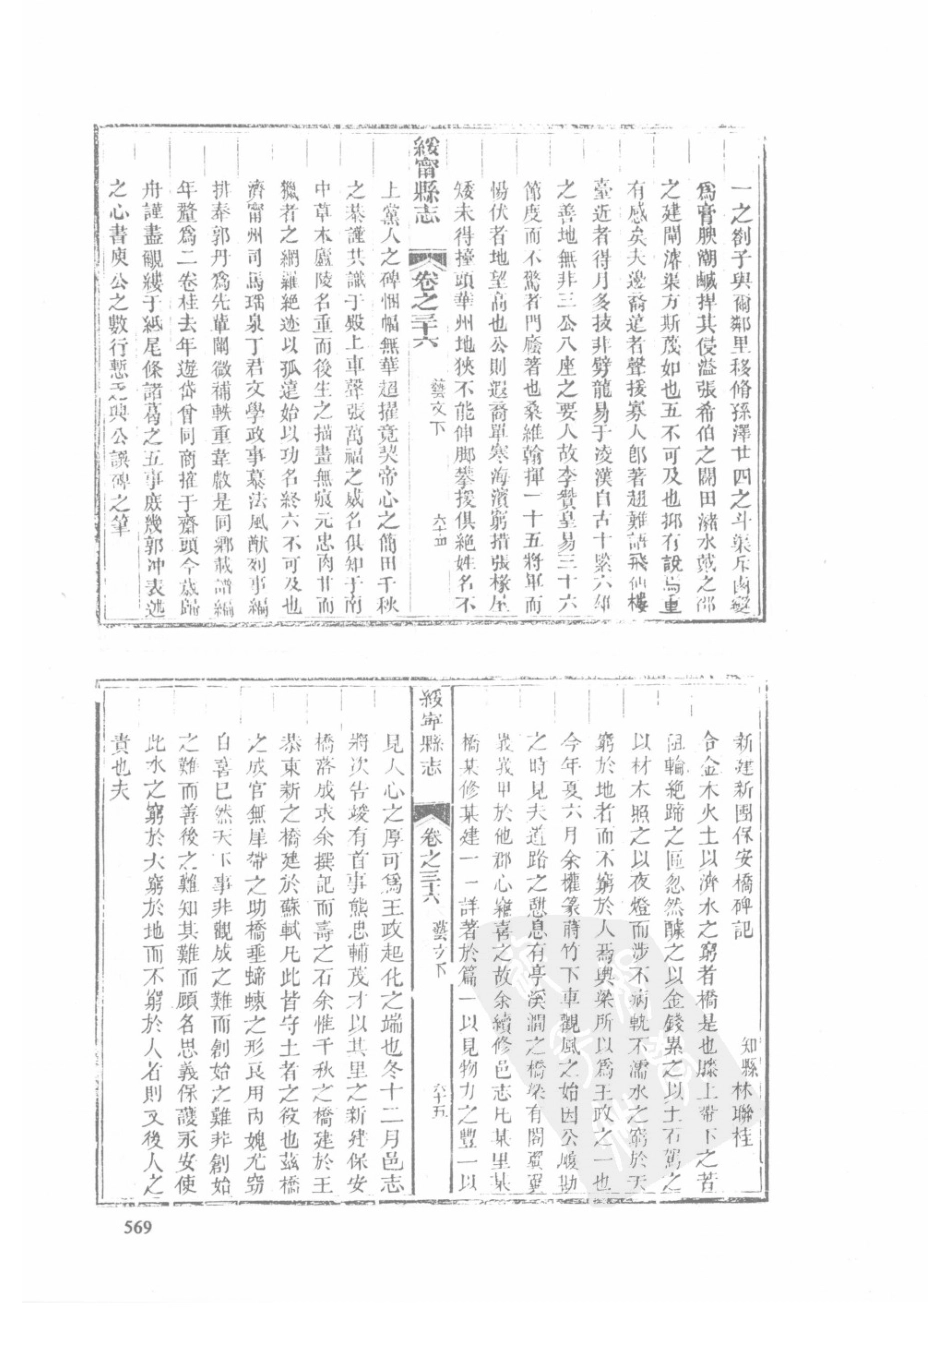 一之劄子與爾鄰里移脩孫澤廿四之斗渠斥鹵變
爲膏腴潮鹹捍其侵溢張希伯之闢田潴水黃之邵
之建閘濬渠方斯茂如也五不可及也抑有說焉重
有感矣夫邊裔遠者聲援寡人郎著趙難語飛仙樓
臺近者得月多技非劈龍易于凌漢自古十縣六雄
之善地無非三公八座之要人故李贊皇易三十六
節度而不驚者門廕著也桑維翰揮一十五將軍而
惕伏者地望高也公則遐裔單寒海濱窮措張椽屋
矮未得擡頭華州地狹不能伸脚攀援俱絶姓名不
綏甯縣志
卷之三十六
藝文下
六十四
上黨人之碑悃愊無華超擢竟契帝心之簡田千秋
之恭謹共識于殿上車聲張萬福之威名俱知于南
中草木廬陵名重而後生之描畫無痕元忠肉甘而
獵者之網羅絶迹以孤遠始以功名終六不可及也
濟甯州司馬璠泉丁君文學政事慕法風猷列事編
排奉郭丹爲先輩闡微補軼重韋㪟是同鄉載譜編
年釐爲二卷桂去年遊岱曾同商搉于齋頭今茲歸
舟謹盡覼縷于紙尾條諸葛之五事庶幾郭冲表述
之心書庾公之數行慙乏與公譔碑之筆
新建新團保安橋碑記
知縣林聯桂
合金木火土以濟水之窮者橋是也滕上帶下之苦
阻輪絶蹄之區忽然釀之以金錢累之以土石駕之
以材木照之以夜燈而涉不病軌不濡水之窮於天
窮於地者而不窮於人焉輿梁所以爲王政之一也
今年夏六月余權篆蒔竹下車觀風之始因公履勘
之時見夫道路之憩息有亭溪澗之橋梁有閣翼翼
巍巍甲於他郡心竊喜之故余續修邑志凡某里某
橋某修某建一一詳著於篇一以見物力之豐一以
綏寧縣志
卷之三十六
藝文下
六十五
見人心之厚可爲王政起化之端也冬十二月邑志
將次告竣有首事熊忠輔茂才以其里之新建保安
橋落成求余撰記而壽之石余惟千秋之橋建於王
恭東新之橋建於蘇軾凡此皆守土者之役也茲橋
之成官無犀帶之助橋垂蝃蝀之形艮用內媿尤竊
自喜已然天下事非觀成之難而創始之難非創始
之難而善後之難知其難而顧名思義保護永安使
此水之窮於天窮於地而不窮於人者則又後人之
責也夫
569